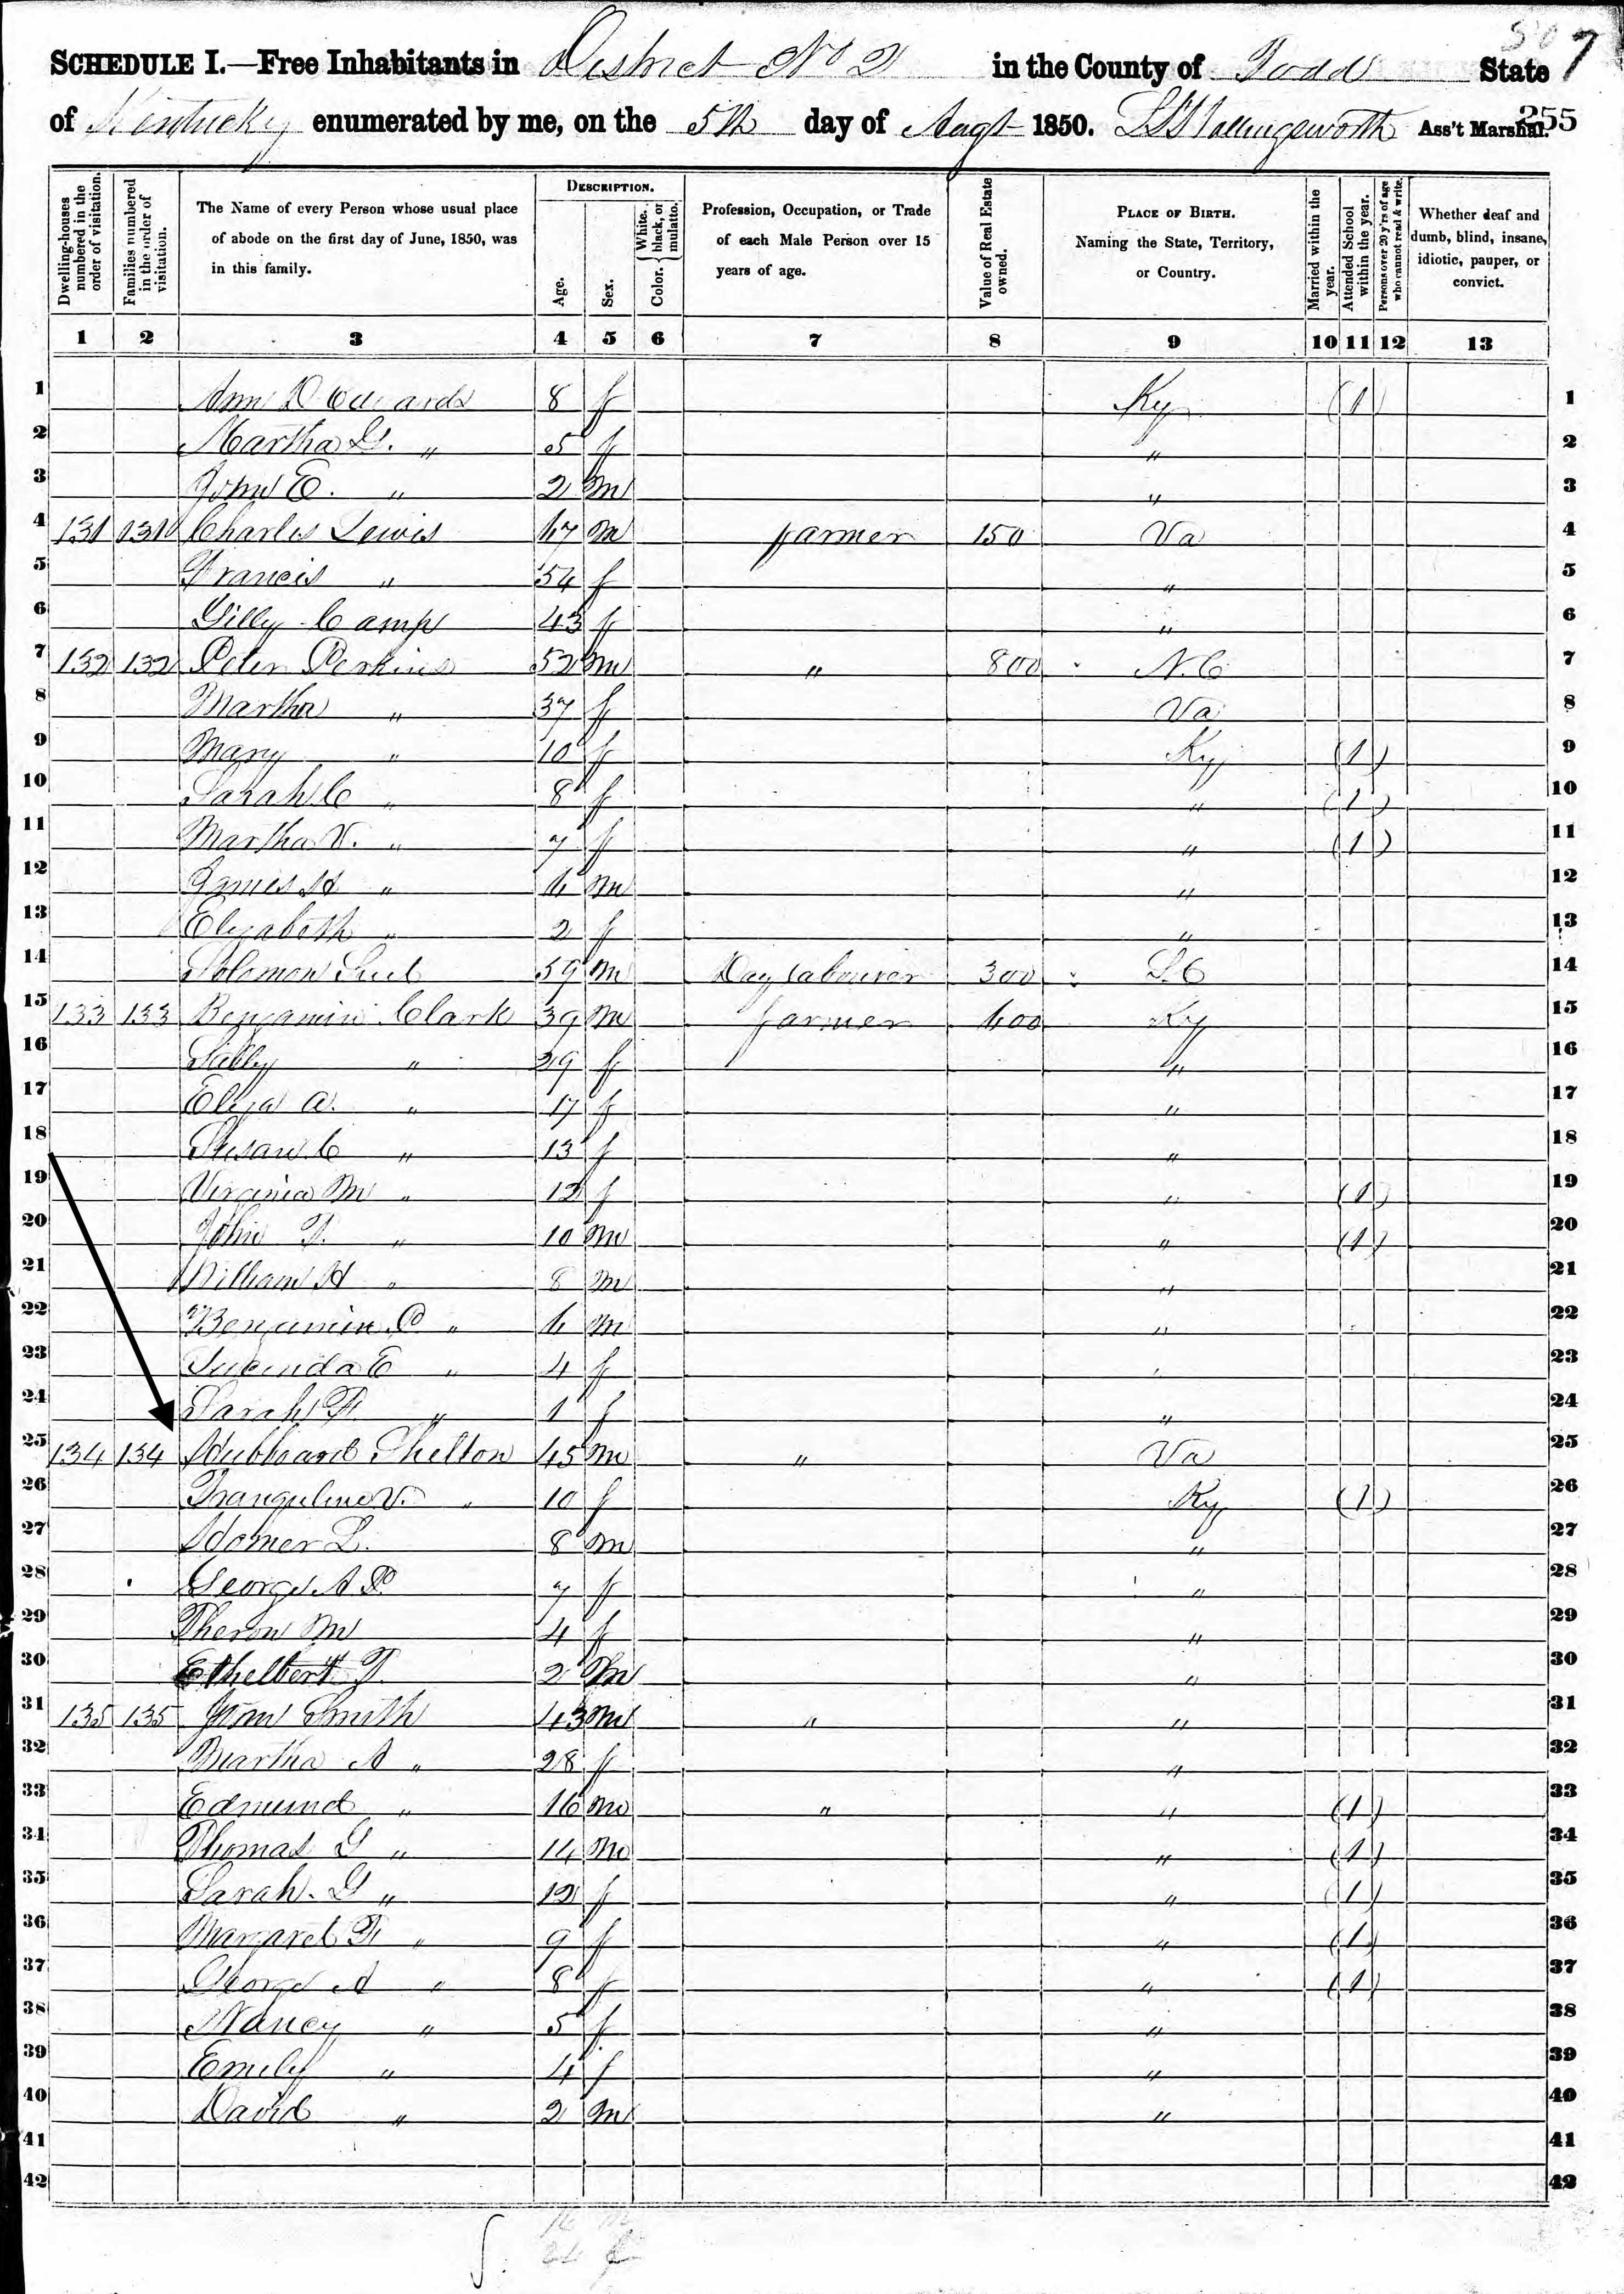 507
SCHEDULE I.—Free Inhabitants in District No 2 in the County of Todd State
of Kentucky enumerated by me, on the 5th day of Augt 1850. Hollingsworth Ass't Marshal. 255
Dwelling-houses numbered in the order of visitation.
Families numbered in the order of visitation.
The Name of every Person whose usual place of abode on the first day of June, 1850, was in this family.
DESCRIPTION.
Age.
Sex.
Color. { White, black, or mulatto.
Profession, Occupation, or Trade of each Male Person over 15 years of age.
Value of Real Estate owned.
PLACE OF BIRTH. Naming the State, Territory, or Country.
Married within the year.
Attended School within the year.
Persons over 20 y'rs of age who cannot read & write.
Whether deaf and dumb, blind, insane, idiotic, pauper, or convict.
1 2 3 4 5 6 7 8 9 10 11 12 13
1 Ann D Edwards 8 f Ky (1) 1
2 Martha G. " 5 f " 2
3 John E. " 2 m " 3
4 131 131 Charles Lewis 67 m farmer 150 Va 4
5 Francis " 54 f " 5
6 Gilly Camp 43 f " 6
7 132 132 Peter Perkins 52 m " 800 N.C 7
8 Martha " 37 f Va 8
9 Mary " 10 f Ky (1) 9
10 Sarah C " 8 f " (1) 10
11 Martha V. " 7 f " (1) 11
12 James H " 6 m " 12
13 Elizabeth " 2 f " 13
14 Solomon 59 m Day labourer 300 S.C 14
15 133 133 Benjamin Clark 39 m farmer 600 Ky 15
16 Sally " 29 f " 16
17 Eliza A. " 17 f " 17
18 Susan C " 13 f " 18
19 Virginia M " 12 f " (1) 19
20 John T. " 10 m " (1) 20
21 William H " 8 m " 21
22 Benjamin P " 6 m " 22
23 Lucinda E " 4 f " 23
24 Sarah F. " 1 f " 24
25 134 134 Hubbard Shelton 45 m " Va 25
26 Tranquline V. " 10 f Ky (1) 26
27 Homer L. 8 m " 27
28 George A P 7 f " 28
29 Theron M 4 f " 29
30 Ethelbert T. 2 m " 30
31 135 135 Smith 43 m " " 31
32 Martha A " 28 f " 32
33 Edmund " 16 m " " (1) 33
34 Thomas G " 14 m " (1) 34
35 Sarah. G " 12 f " (1) 35
36 Margaret F " 9 f " (1) 36
37 George A " 8 f " (1) 37
38 Nancy " 5 f " 38
39 Emily " 4 f " 39
40 David " 2 m " 40
41 41
42 42
16 m
24 f